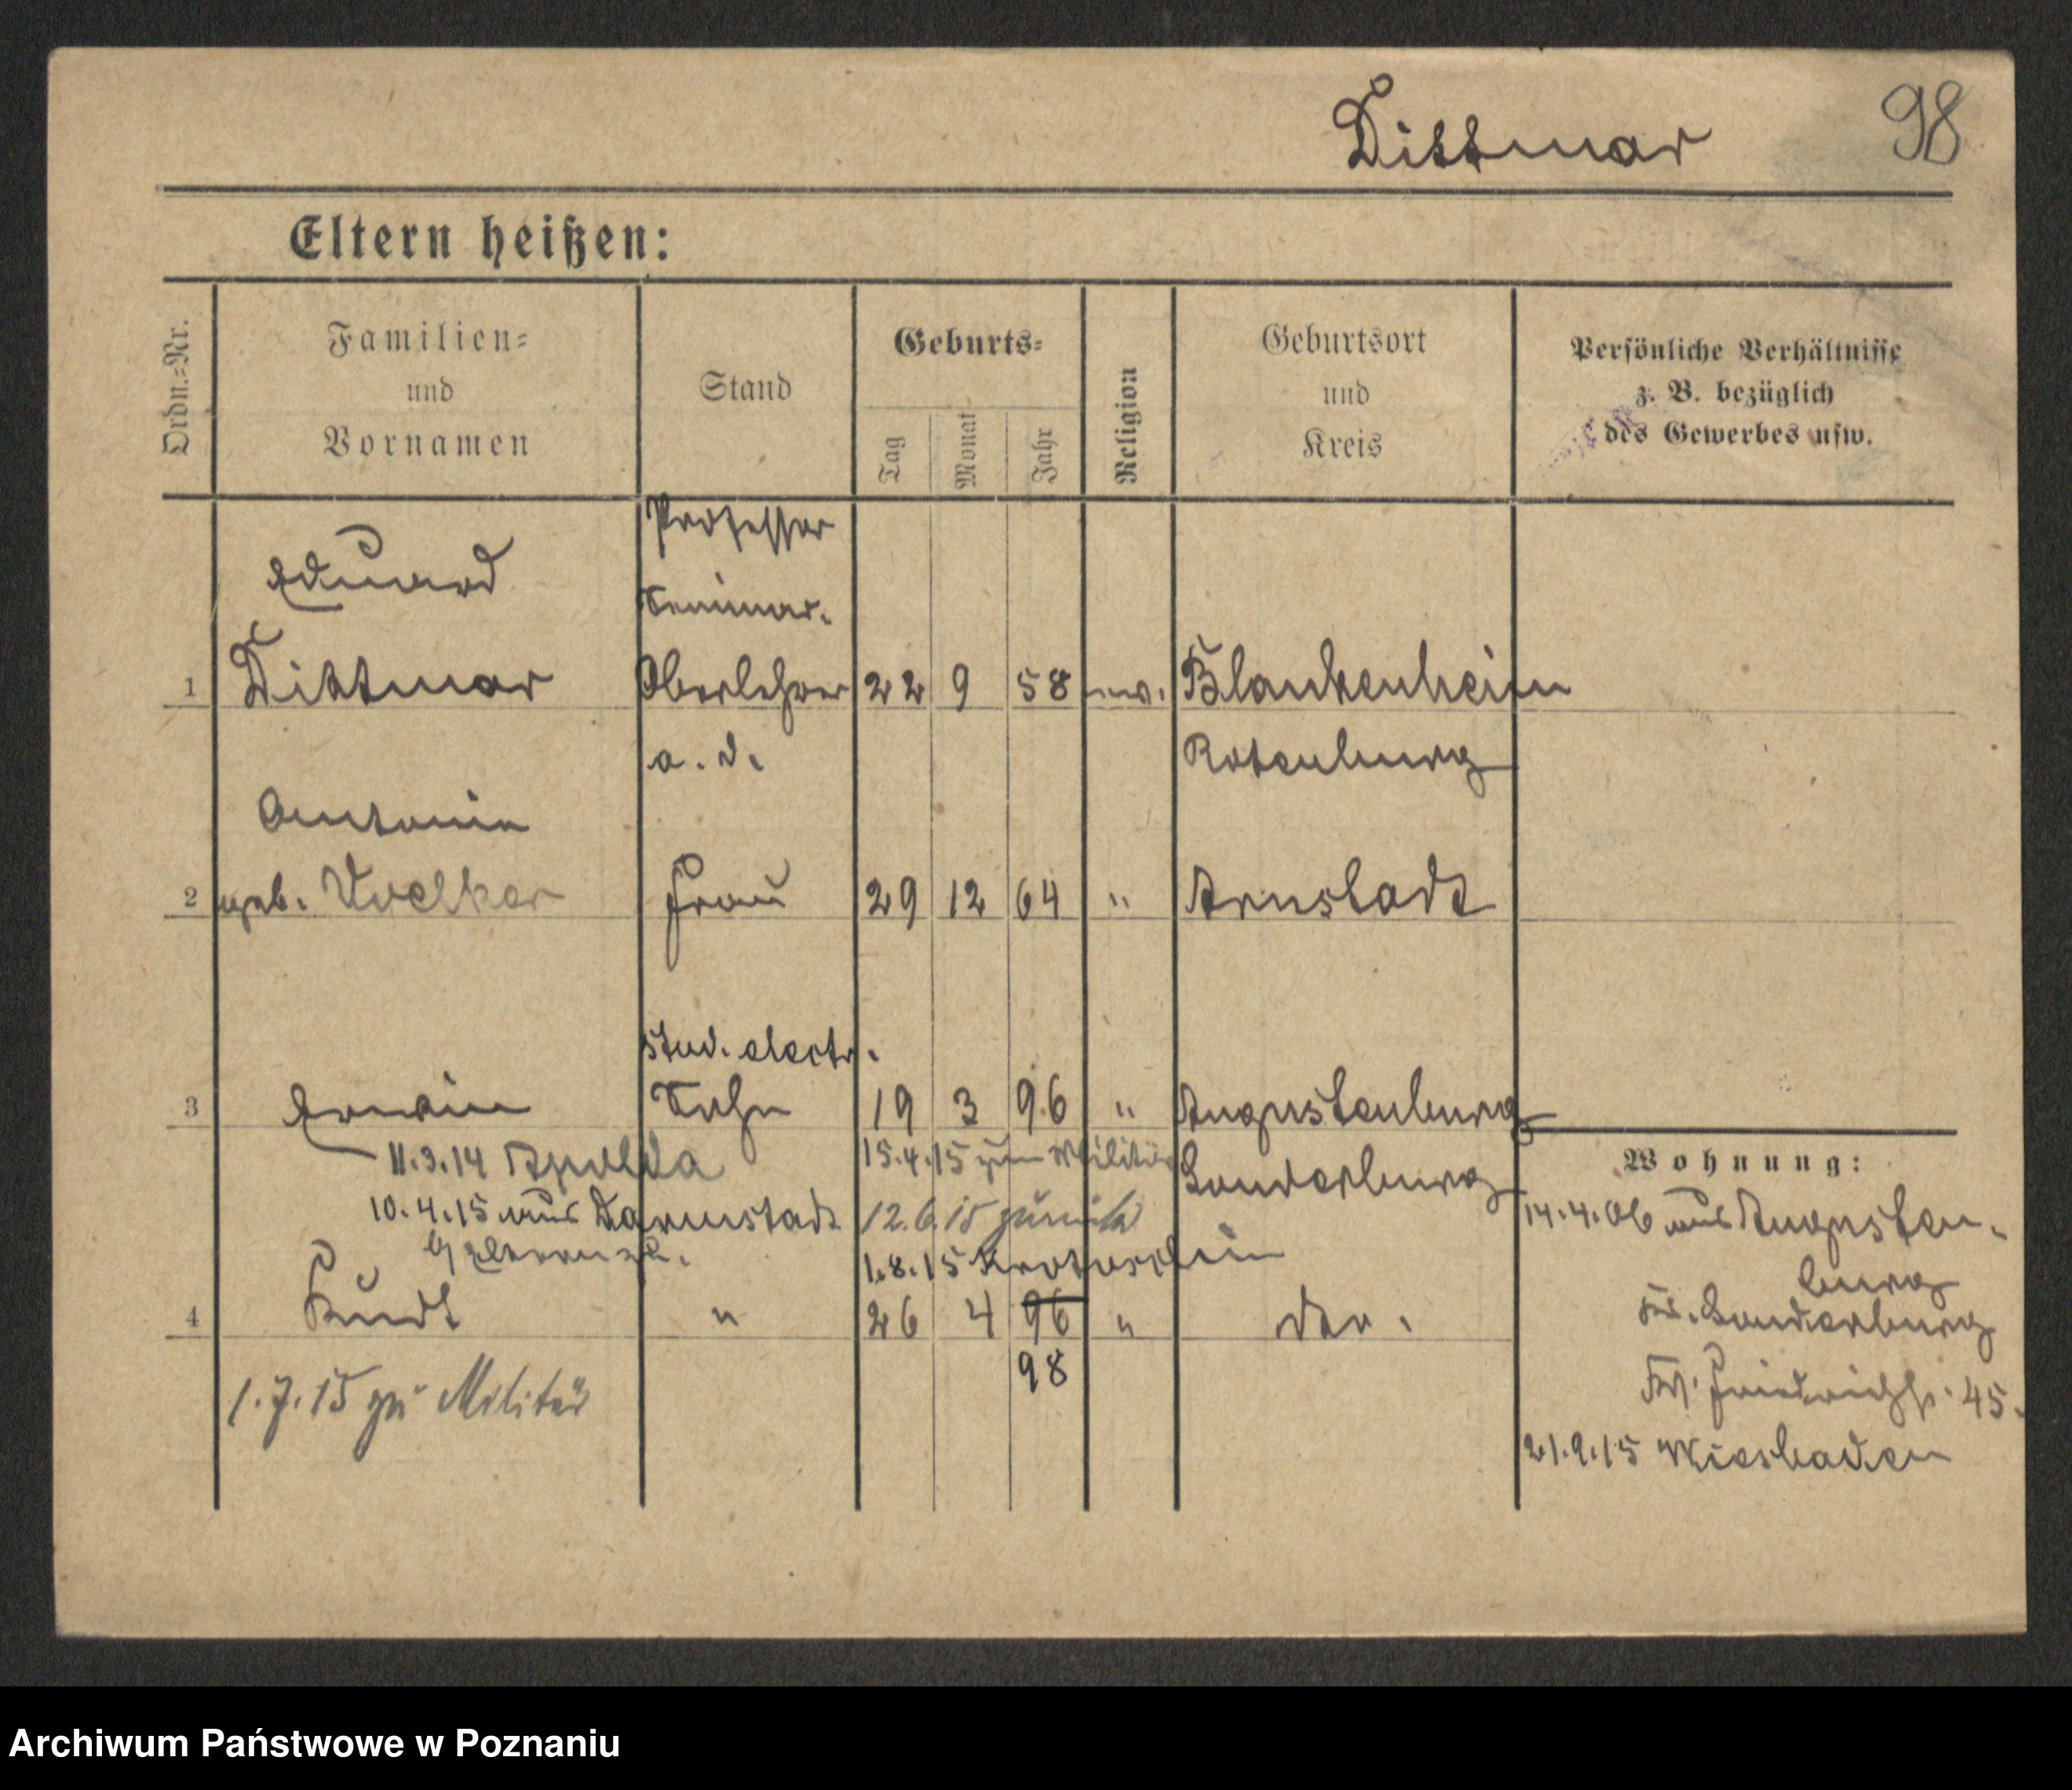 Dittmar 98
Eltern heißen:
Ordn.=Nr.
Familien=
und
Vornamen
Stand
Geburts=
Tag
Monat
Jahr
Religion
Geburtsort
und
Kreis
Persönliche Verhältnisse
z. B. bezüglich
des Gewerbes usw.
Professor
Eduard
Seminar.
1 Dittmar Oberlehrer 22 9 58 ev. Blankenheim
a. D. Rotenburg
Antonie
2 geb. Voelker Frau 29 12 64 " Arnstadt
stud. electr.
3 Erwin Sohn 19 3 96 " Augustenburg
11.3.14 Apolda 15.4.15 zum Militär Sonderburg
10.4.15 aus Darmstadt 12.6.15 zurück
1.8.15 Krotoschin
4 Kurt " 26 4 96 " do.
98
1.7.15 zu Militär
Wohnung:
14.4.06 aus Augusten-
burg
Kr. Sonderburg
Friedrichstr. 45.
21.9.15 Wiesbaden
Archiwum Państwowe w Poznaniu